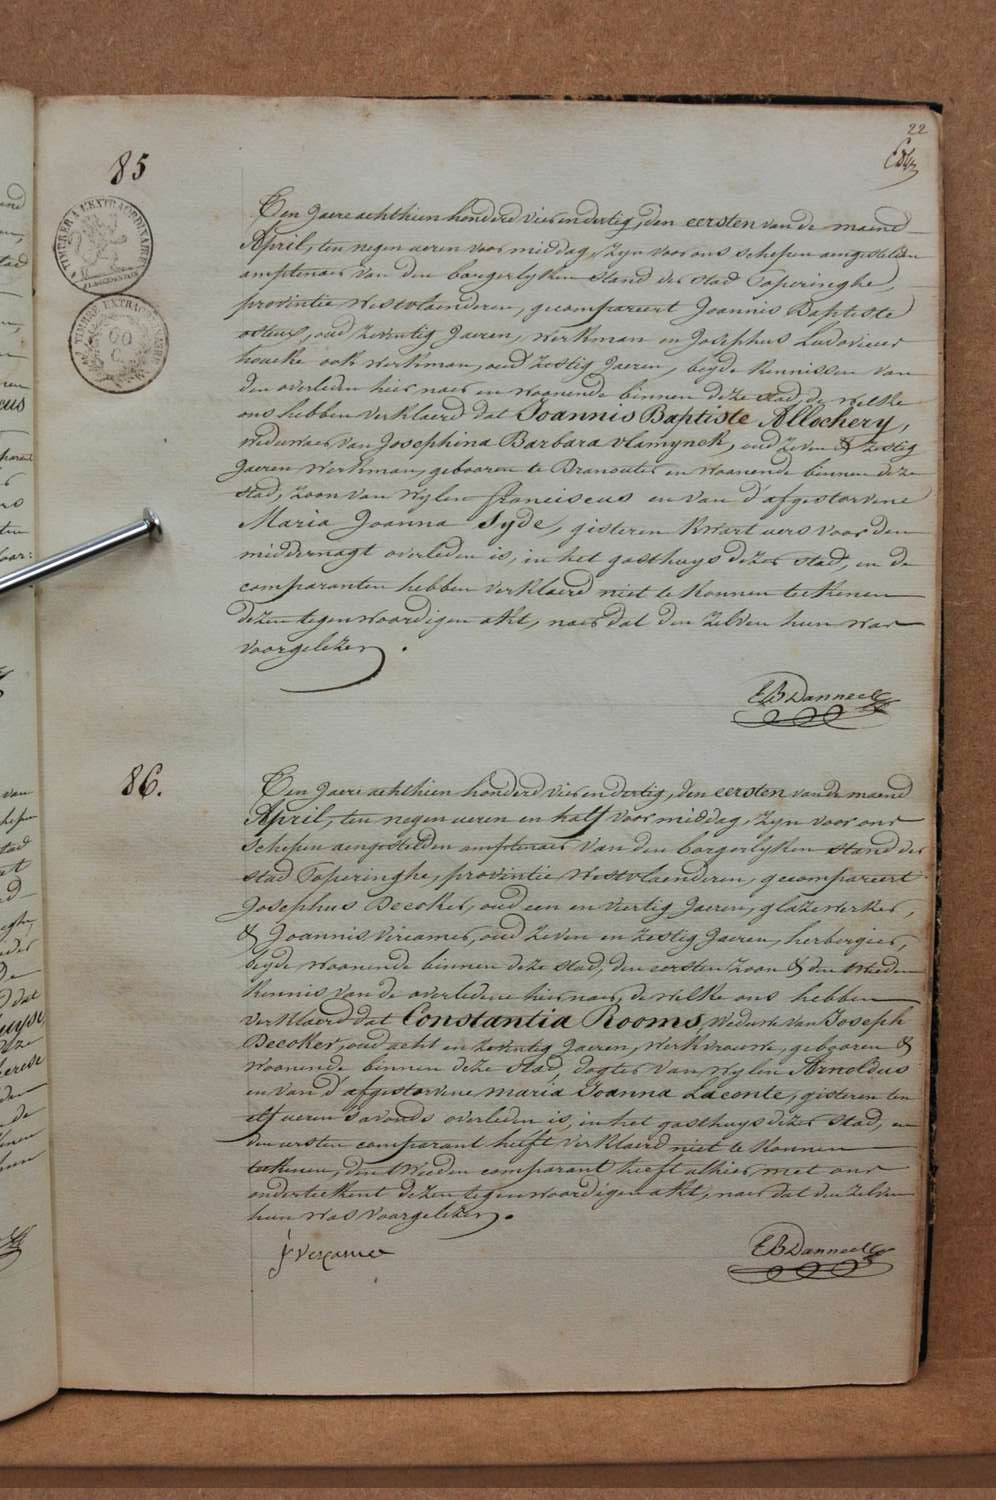 22
85
TIMBRE A L'EXTRAORDINAIRE
TIMBRE EXTRAORDINAIRE
Een jaere achthien honderd vier en dertig, den eersten van de maend
April, ten negen ueren voor middag, zyn voor ons schepen aengestelden
amptenaer van den borgerlyken stand der stad Poperinghe,
provintie Westvlaenderen, gecompareert Joannis Baptiste
oud zeventig Jaeren, Werkman en Josephus Ludovicus
houcke ook Werkman, oud zestig Jaeren, beyde kennissen van
den overleden hier naer en woonende binnen deze stad, de welke
ons hebben verklaerd dat Joannis Baptiste Allochery,
weduwaer van Josephina Barbara Vlamynck, oud zeven & zestig
Jaeren Werkman, gebooren te Dranouter en woonende binnen deze
stad, zoon van wylen franciscus en van d'afgestorvene
Maria Joanna Syde, gisteren kwart uers voor den
middernagt overleden is, in het gasthuys dezer stad, en de
comparanten hebben verklaerd niet te konnen teekenen
dezen tegenwoordigen akt, naer dat den zelven hun was
voorgelezen.
E B Danneel
86.
Een jaere achthien honderd vier en dertig, den eersten van de maend
April, ten negen ueren en half voor middag, zyn voor ons
schepen aengestelden amptenaer van den borgerlyken stand der
stad Poperinghe, provintie Westvlaenderen, gecompareert
Josephus Decoker, oud een en veertig Jaeren, glazewerker,
& Joannis oud zeven en zestig Jaeren, herbergier,
beyde woonende binnen deze stad, den eersten zoon & den tweeden
kennis van de overledene hier naer, de welke ons hebben
verklaerd dat Constantia Rooms, Weduwe van Joseph
Decoker, oud acht en zeventig Jaeren, Werkvrouwe, gebooren &
woonende binnen deze stad, dogter van wylen Arnoldus
en van d'afgestorvene maria Joanna Laconte, gisteren ten
elf ueren s'avonds overleden is, in het gasthuys dezer stad, en
den eersten comparant heeft verklaerd niet te konnen
teekenen, den tweeden comparant heeft alhier met ons
onderteekent dezen tegenwoordigen akt, naer dat den zelven
hun was voorgelezen.
E B Danneel